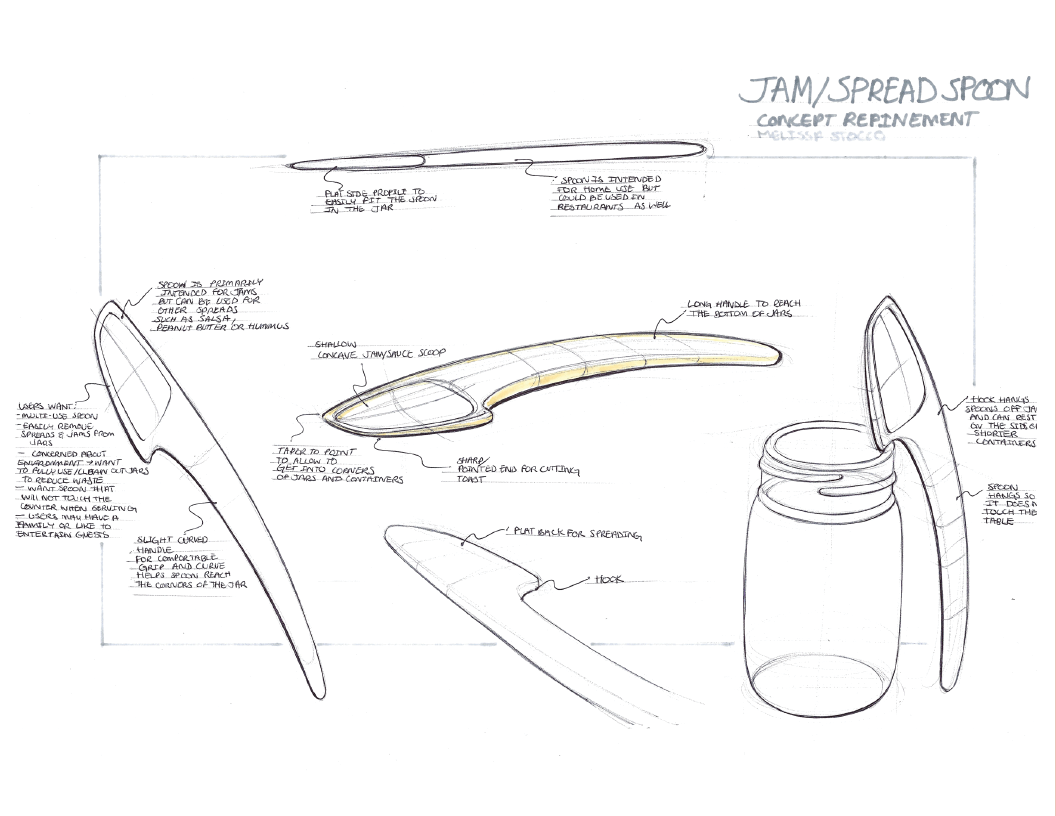 JAM/SPREAD SPOON
CONCEPT REFINEMENT
FLAT SIDE PROFILE TO
EASILY FIT THE SPOON
IN THE JAR
SPOON IS INTENDED
FOR HOME USE BUT
COULD BE USED IN
RESTAURANTS AS WELL
SPOON IS PRIMARILY
INTENDED FOR JAMS
BUT CAN BE USED FOR
OTHER SPREADS
SUCH AS SALSA,
PEANUT BUTTER OR HUMMUS
LONG HANDLE TO REACH
THE BOTTOM OF JARS
SHALLOW
CONCAVE JAM/SAUCE SCOOP
USERS WANT:
-MULTI-USE SPOON
-EASILY REMOVE
SPREADS & JAMS FROM
JARS
- CONCERNED ABOUT
ENVIRONMENT → WANT
TO FULLY USE/CLEAN OUT JARS
TO REDUCE WASTE
- WANT SPOON THAT
WILL NOT TOUCH THE
COUNTER WHEN SERVING
- USERS MAY HAVE A
FAMILY OR LIKE TO
ENTERTAIN GUESTS
TAPER TO POINT
TO ALLOW TO
GET INTO CORNERS
OF JARS AND CONTAINERS
SHARP/
POINTED END FOR CUTTING
TOAST
HOOK HANGS
SPOONS OFF JA
AND CAN REST
ON THE SIDE O
SHORTER
CONTAINERS
SPOON
HANGS SO
IT DOESN
TOUCH THE
TABLE
SLIGHT CURVED
HANDLE
FOR COMFORTABLE
GRIP AND CURVE
HELPS SPOON REACH
THE CORNERS OF THE JAR
FLAT BACK FOR SPREADING
HOOK